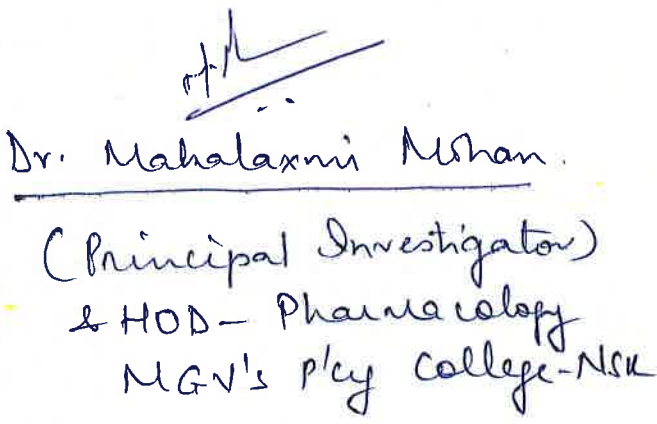 Dr. Mahalaxmi Mohan.
(Principal Investigator)
& HOD- Pharmacology
MGV's P'cy College-NSK